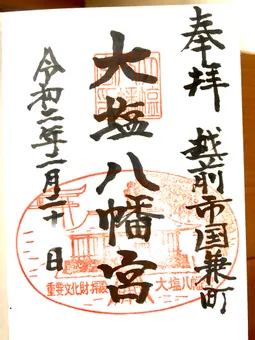 奉拝
越前市国兼町
大塩八幡宮
令和二年二月二十日
重要文化財拝殿
大塩八幡宮